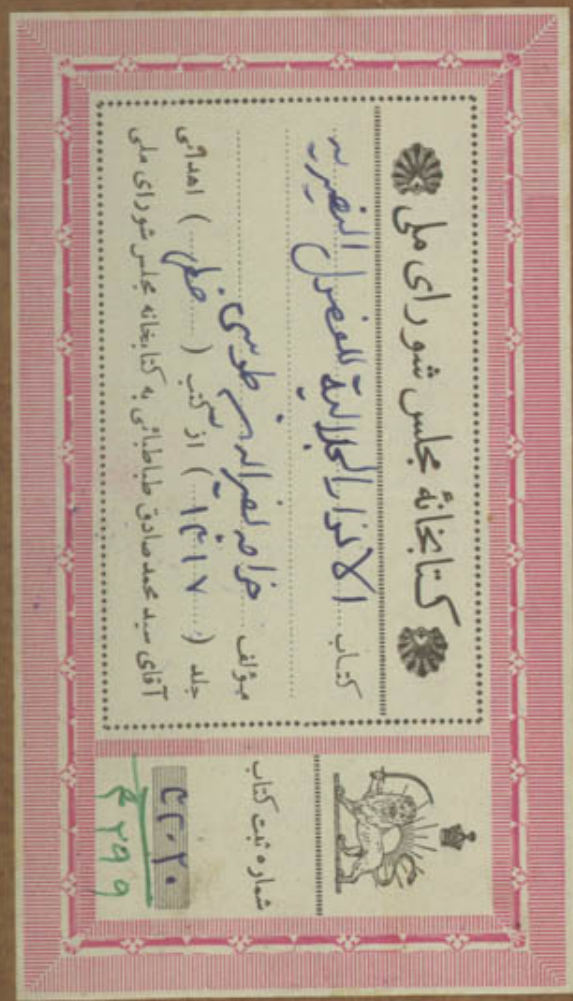 کتابخانهٔ مجلس شورای ملی
کتاب الانوار الجلالیة للفصول النصیریه
مؤلف خواجه نصیرالدین طوسی
جلد ( ۱۴۱۷ ) از کتب ( خطی ) اهدائی
آقای سید محمد صادق طباطبائی به کتابخانه مجلس شورای ملی
شماره ثبت کتاب
۴۲۹۹